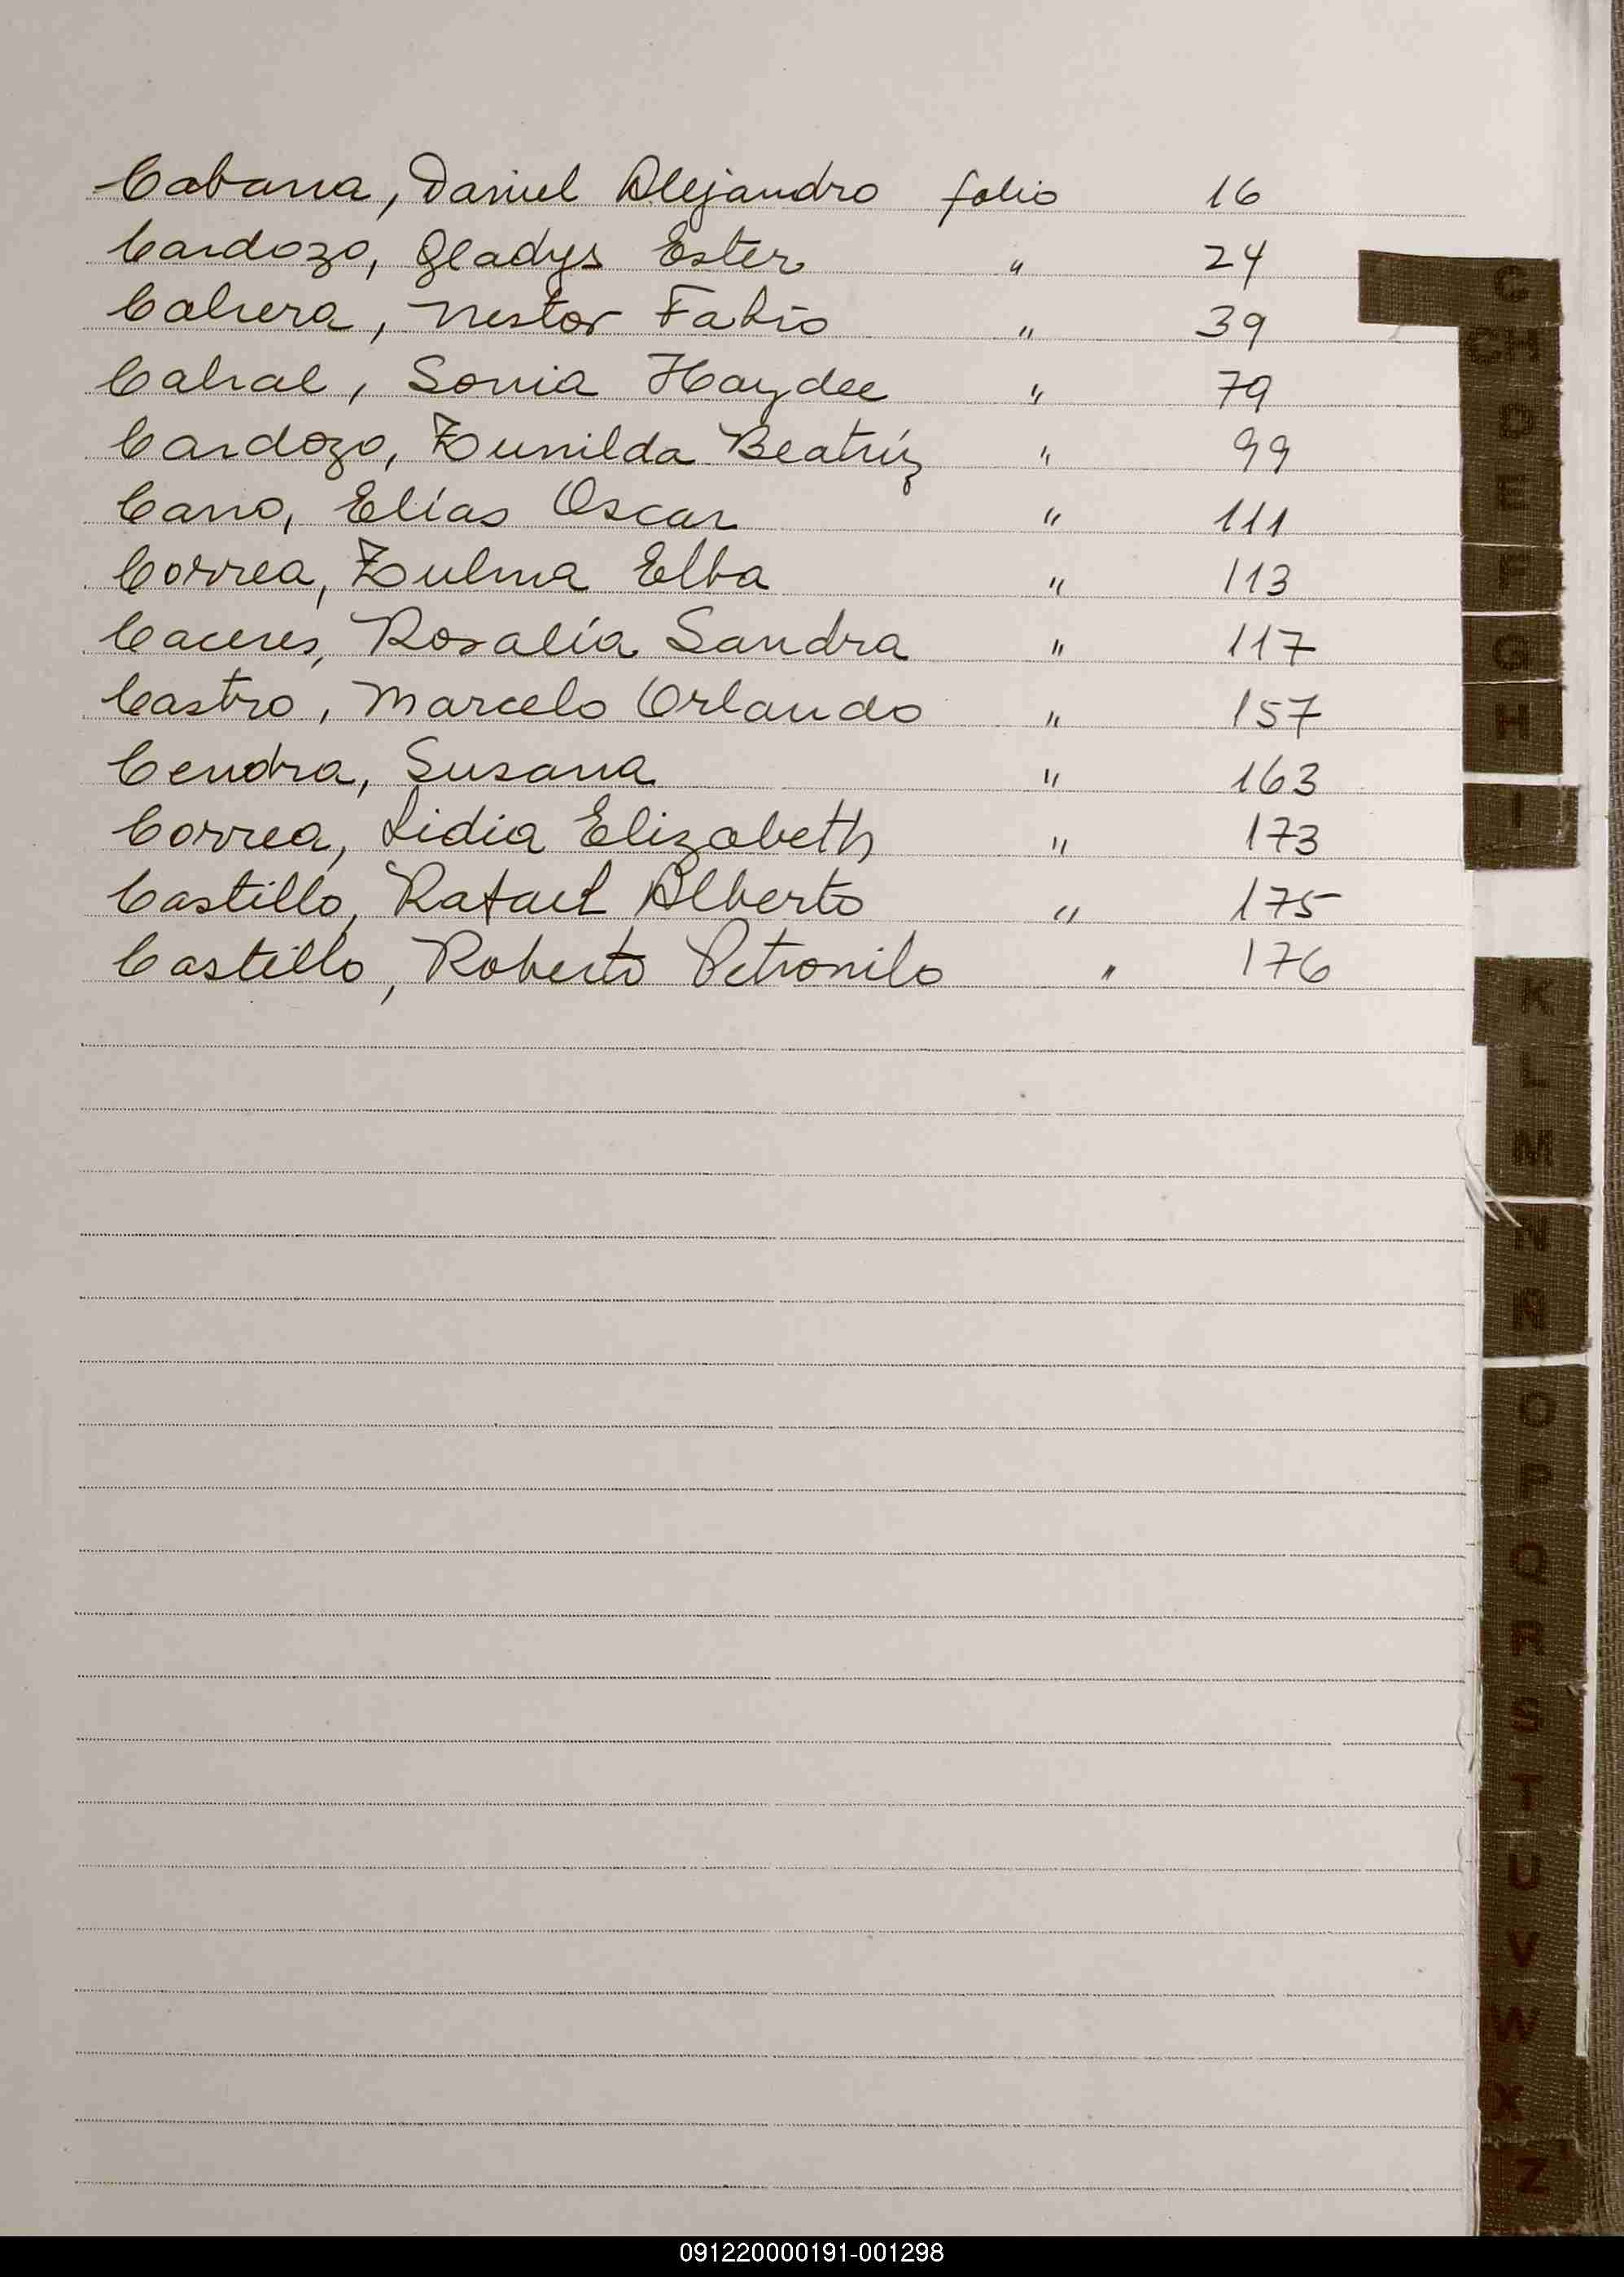 Cabana, Daniel Alejandro folio 16
Cardozo, Gladys Ester " 24
Cabrera, Nestor Fabio " 39
Cabral, Sonia Haydee " 79
Cardozo, Zunilda Beatríz " 99
Cano, Elías Oscar " 111
Correa, Zulma Elba " 113
Caceres, Rosalía Sandra " 117
Castro, Marcelo Orlando " 157
Cendra, Susana " 163
Correa, Lidia Elizabeth " 173
Castillo, Rafael Alberto " 175
Castillo, Roberto Petronilo " 176
C
CH
D
E
F
G
H
I
K
L
M
N
Ñ
O
P
Q
R
S
T
U
V
W
X
Z
091220000191-001298